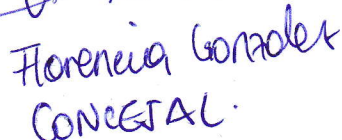 Florencia Gonzalez
CONCEJAL.